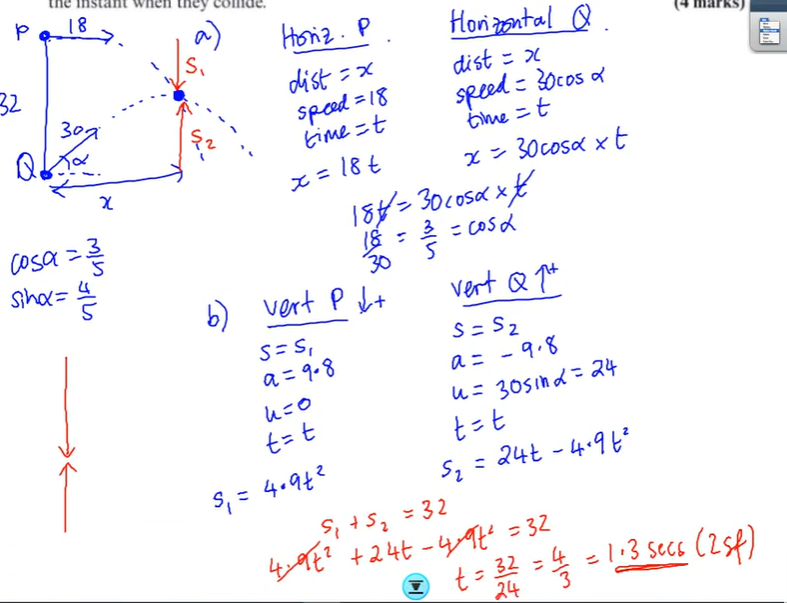 the instant when they collide.
(4 marks)
P 18
32
30
Q α
x
a)
S₁
S₂
Horiz. P.
dist = x
speed = 18
time = t
x = 18t
Horizontal Q.
dist = x
speed = 30cos α
time = t
x = 30cosα × t
18t = 30cosα × t
18/30 = 3/5 = cosα
cosα = 3/5
sinα = 4/5
b) vert P ↓+
s = s₁
a = 9.8
u = 0
t = t
s₁ = 4.9t²
vert Q ↑+
s = s₂
a = -9.8
u = 30sinα = 24
t = t
s₂ = 24t - 4.9t²
s₁ + s₂ = 32
4.9t² + 24t - 4.9t² = 32
t = 32/24 = 4/3 = 1.3 secs (2sf)